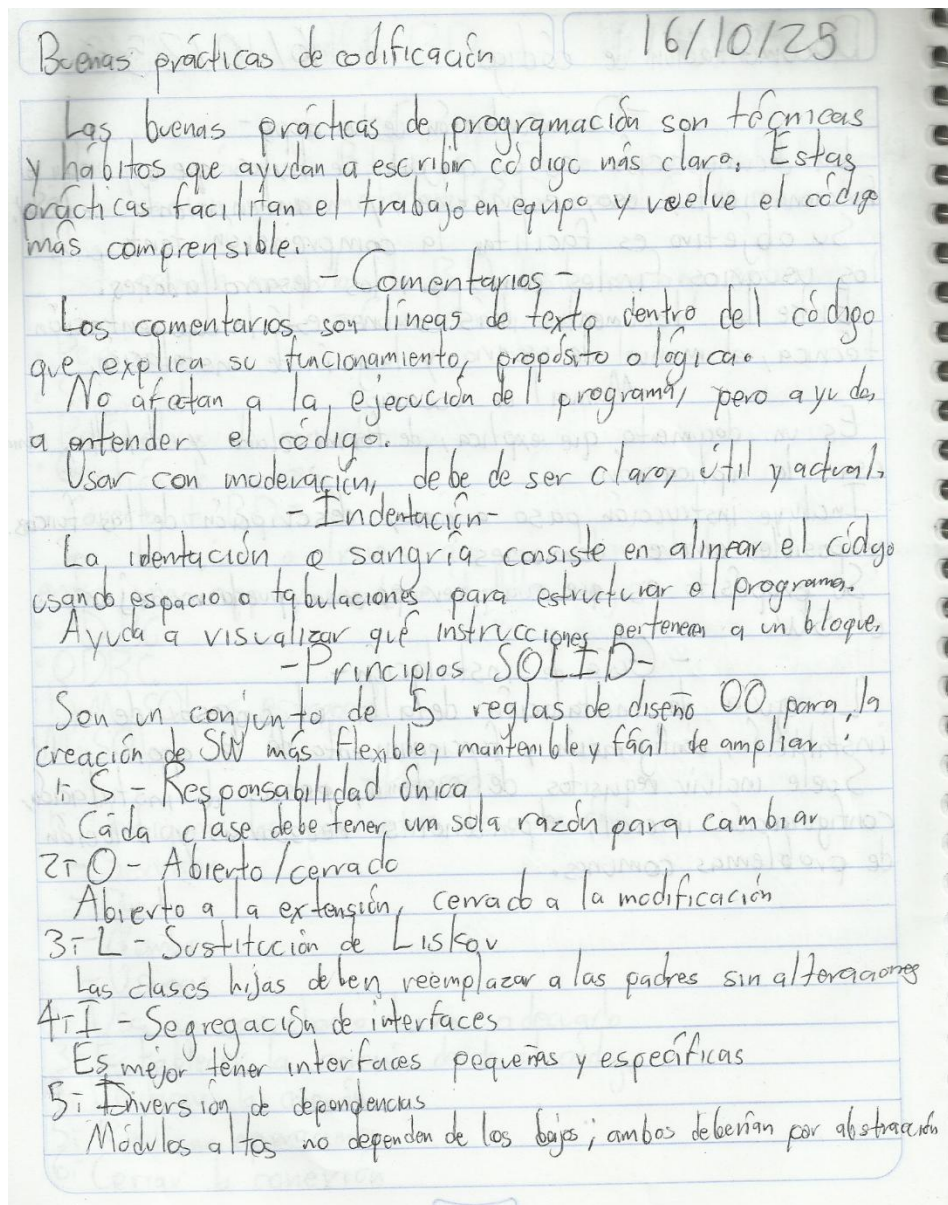 Buenas prácticas de codificación
16/10/25
Las buenas prácticas de programación son técnicas
y hábitos que ayudan a escribir código más claro. Estas
prácticas facilitan el trabajo en equipo y vuelve el código
más comprensible.
- Comentarios -
Los comentarios son líneas de texto dentro del código
que explica su funcionamiento, propósito o lógica.
No afectan a la ejecución del programa, pero ayuda
a entender el código.
Usar con moderación, debe de ser claro, útil y actual.
- Indentación -
La identación o sangría consiste en alinear el código
usando espacio o tabulaciones para estructurar el programa.
Ayuda a visualizar qué instrucciones pertenecen a un bloque.
- Principios SOLID -
Son un conjunto de 5 reglas de diseño OO para la
creación de SW más flexible, mantenible y fácil de ampliar:
1.- S - Responsabilidad única
Cada clase debe tener una sola razón para cambiar
2.- O - Abierto/cerrado
Abierto a la extensión, cerrado a la modificación
3.- L - Sustitución de Liskov
Las clases hijas deben reemplazar a las padres sin alteraciones
4.- I - Segregación de interfaces
Es mejor tener interfaces pequeñas y específicas
5.- de dependencias
Módulos altos no dependen de los bajos; ambos deberían por abstracción